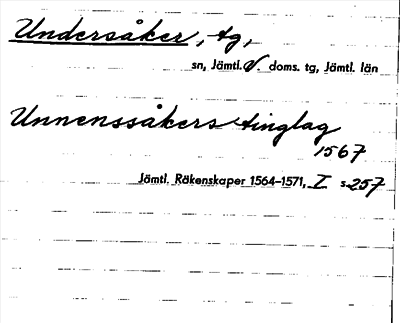 Undersåker, tg,
sn, Jämtl. V. doms. tg, Jämtl. län
Unnenssåkers tinglag
1567
Jämtl. Räkenskaper 1564–1571, I s. 257